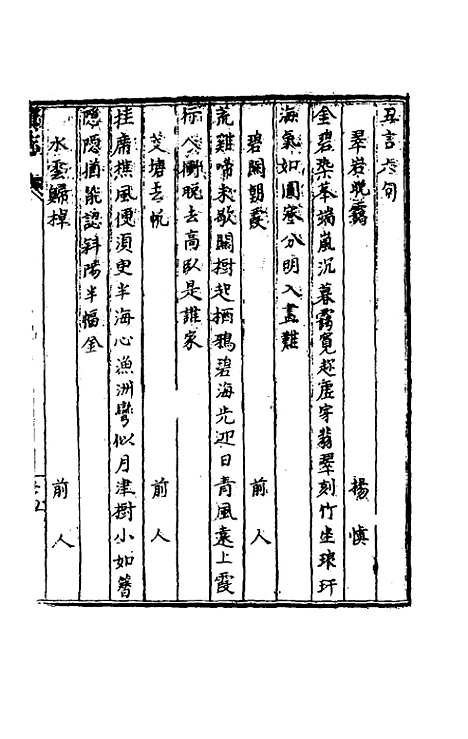 五言六句
翠岩晚靄　楊慎
金碧染峯端嵐沉暮靄寬趁虛穿翡翠刻竹坐琅玕
海氣如圓寮分明入畫難
碧關朝霞　前人
荒雞啼未歇關樹起栖鴉碧海先迎日青風遠上霞
行人衝脫去高臥是誰家
塘去帆　前人
挂席樵風便須臾半海心漁洲彎似月津樹小如簪
隱隱猶能認斜陽半幅金
水雲歸棹　前人